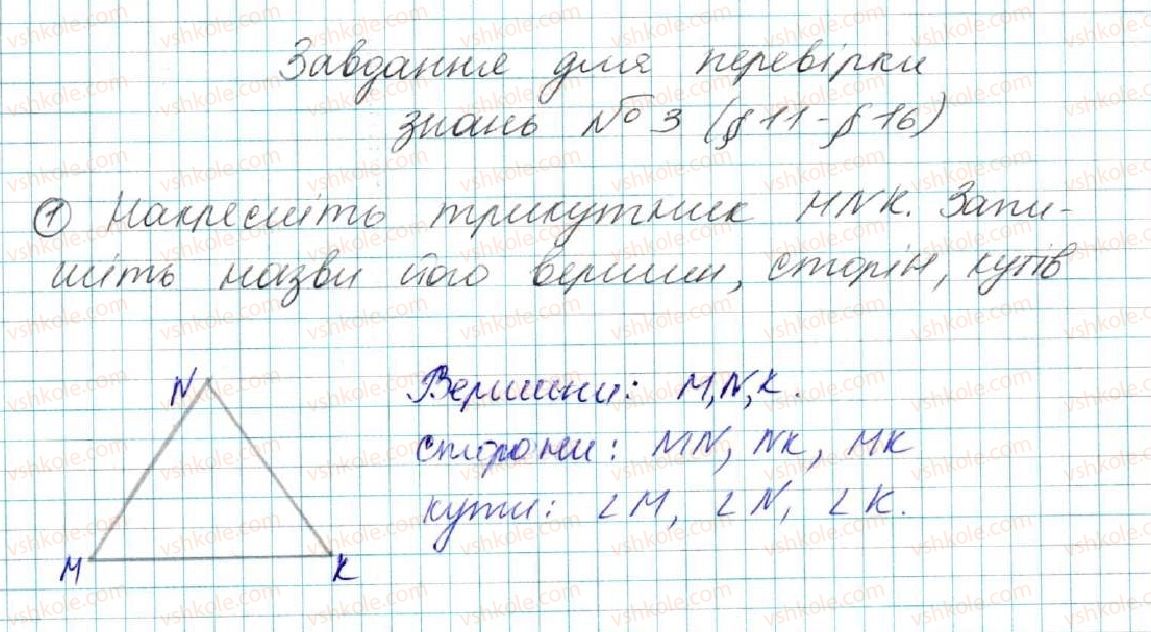 Завдання для перевірки
знань №3 (§11-§16)
① Накресліть трикутник MNK. Запи-
шіть назви його вершин, сторін, кутів
N
M
K
Вершини: M, N, K.
Сторони: MN, NK, MK
кути: ∠M, ∠N, ∠K.
vshkole.com